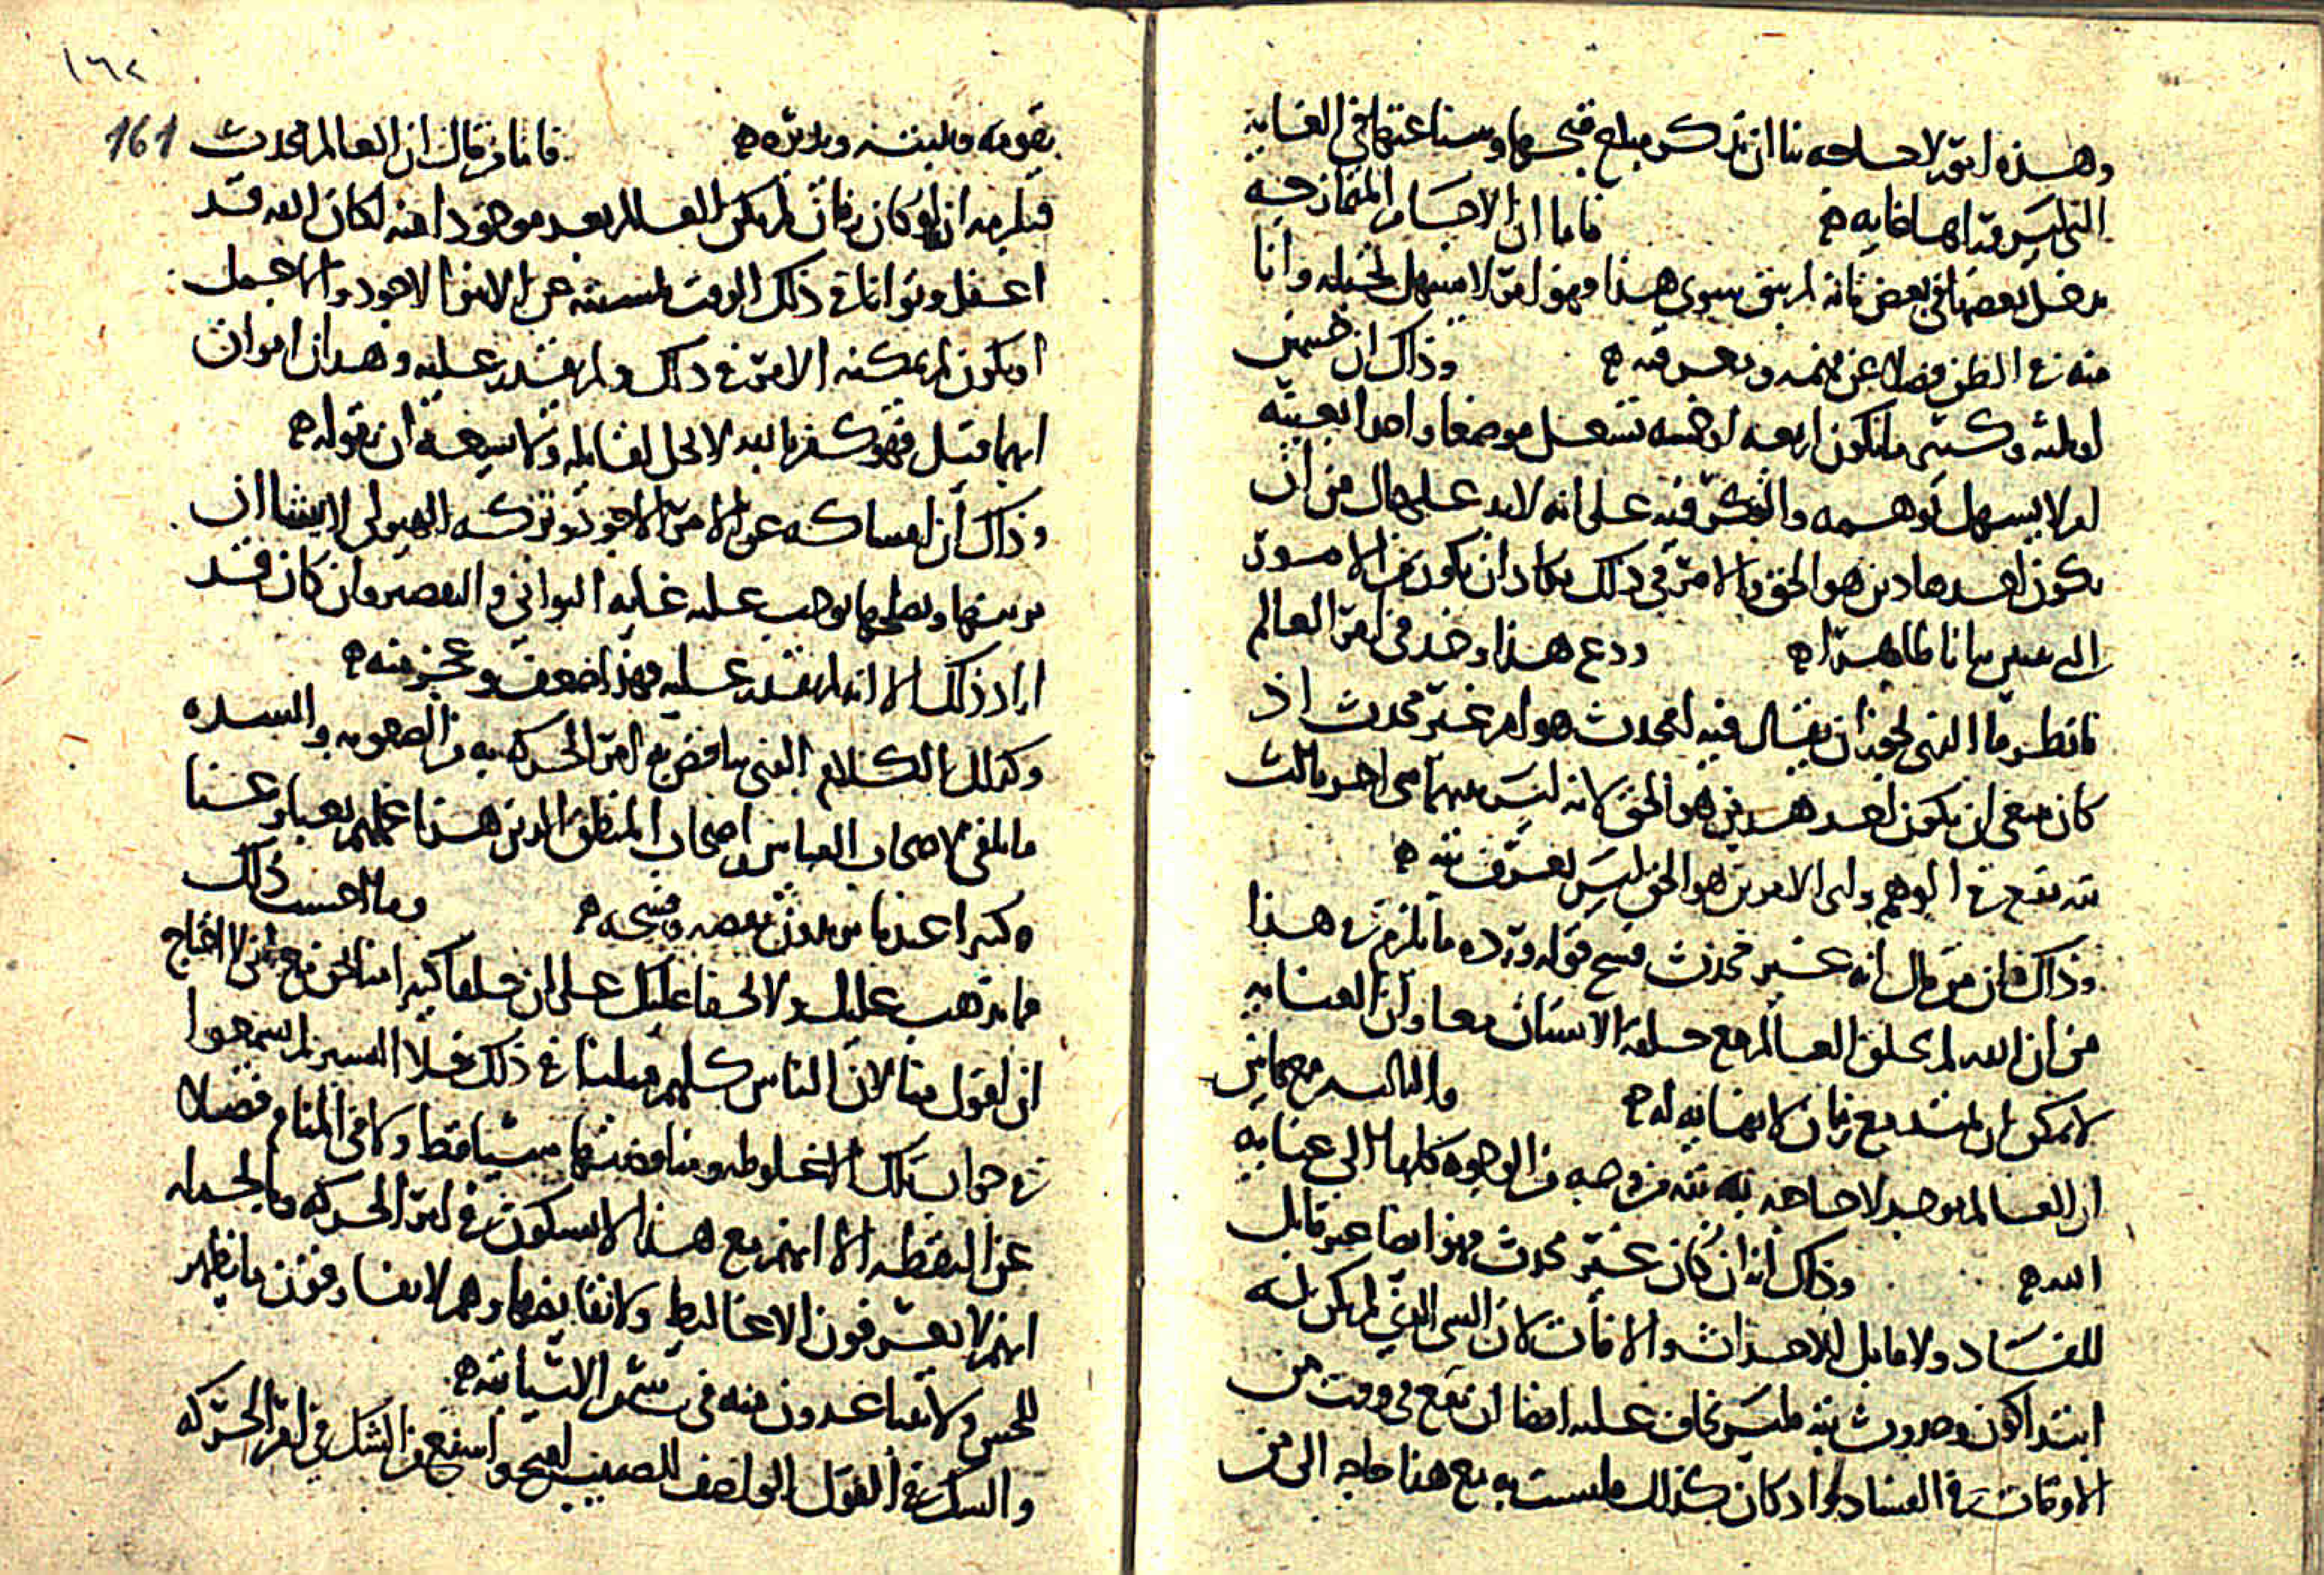 وهذه امور لا حاجه بنا ان نذكر مبلغ قبحها وشناعتها في الغايه
التي ليس وراها غايه ه فاما ان الاجسام المتمازجه
يدخل بعضها في بعض فانه لم يبق سوى هذا فهو امر لا يسهل تخيله وانا
منه في الظن فضلا عن فهمه وتعرفه ه وذاك ان جسمين
او ثلثه وكثيرا ما يكون اربعه او خمسه تشغل موضعا واحدا بعينه
امر لا يسهل توهمه والفكر فيه على انه لابد على حال من ان
يكون احد هاذين هو الحق والامر في ذلك يكاد ان يكون من الامور
التي تتبين بيانا ظاهرا ه ودع هذا وخذ في امر العالم
فانظر ما الذي يجوز ان يقال فيه امحدث هو ام غير محدث اذ
كان ينبغي ان يكون احد هذين هو الحق لانه ليس بينهما شي اخر ثالث
بته يقع في الوهم واي الامرين هو الحق ليس يعرف بته ه
وذاك فان من قال انه غير محدث قبح قوله ورده ما يلزم في هذا
من ان الله لم يخلق العالم مع خلقه الانسان معا وان العنايه
لا يمكن ان تمتد مع زمان لا نهايه له ه والثالثه مع هاتين
ان العالم يوجد لا حاجه به بته من وجه من الوجوه كلها الى عنايه
الله ه وذاك انه ان كان غير محدث فهو ايضا غير قابل
للفساد ولا قابل للاحداث والافات لان الشي الذي لم يكن له
ابتدا كون وحدوث بته فليس يخاف عليه ايضا ان يقع في وقت من
الاوقات في الفساد واذ كان كذلك فليست به مع هذا حاجه الى من
١٦٢
161
يقومه ويثبته ويدبره ه فاما من قال ان العالم محدث
فيلزمه انه لو كان زمان لم يكن العالم بعد موجودا فيه لكان الله قد
اغفل وتوانا في ذلك الوقت لمسكه عن الامر الاجود والاجمل
او يكون لم يمكنه الامر في ذلك ولم يقدر عليه وهذان امران
ايهما قيل فهو كفر بالله لا يحل لقايله ولا يسعه ان يقوله ه
وذاك ان امساكه عن الامر الاجود وتركه الهيولى لا يشا ان
يزينها ويصلحها يوجب عليه غايه التواني والتقصير وان كان قد
اراد ذلك الا انه لم يقدر عليه فهذا ضعف وعجز منه ه
وكذلك الكلام الذي يناقض به امر الحركه به من الصعوبه والشده
ما يلقى لاصحاب القياس واصحاب المنطق الذين هذا عملهم تعبا وعنا
وكبرا عندما يريدون نقضه وفسخه ه وما احسب ذلك
مما يذهب عليك ولا يخفا عليك على ان خلقا كثيرا
ان اقول منا لان الناس كلهم قبلنا في ذلك خلا اليسير لم يسمعوا
في جواب تلك الاغلوطه ومناقضتها شيا قط ولا في المنام فضلا
عن اليقظه الا انهم مع هذا لا يشكون في امر الحركه وبالجمله
انهم لا يعرفون الاغاليط ولا نقايضها وهم لا يفارقون ما يظهر
للحس ولا يتباعدون منه في شي من الاشيا بته ه
والشك في القول الواصف للصبيب اقبح واشنع من الشك في امر الحركه